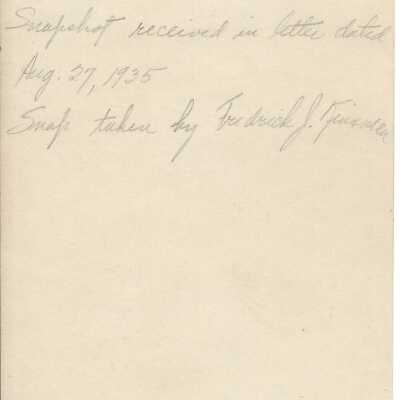 Snapshot received in letter dated
Aug. 27, 1935
Snap taken by Fredrick J.